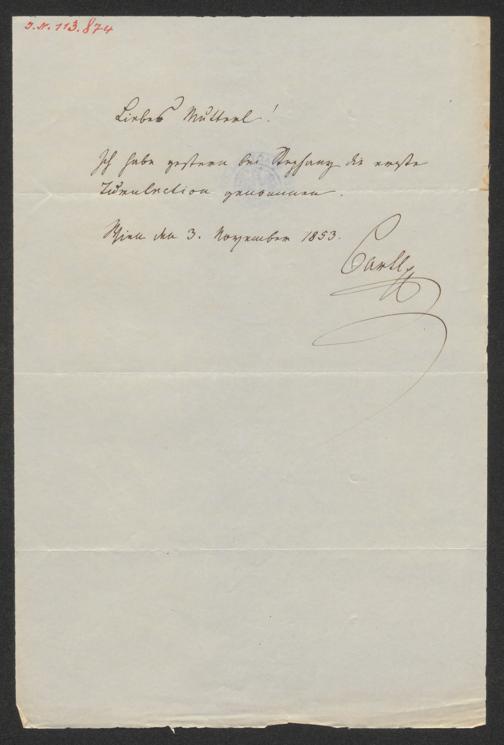 I.N. 113.874
Liebes Mutterl!
Ich habe gestern bei Stephany die erste
Turnlection genommen.
Wien den 3. November 1853.
Carl